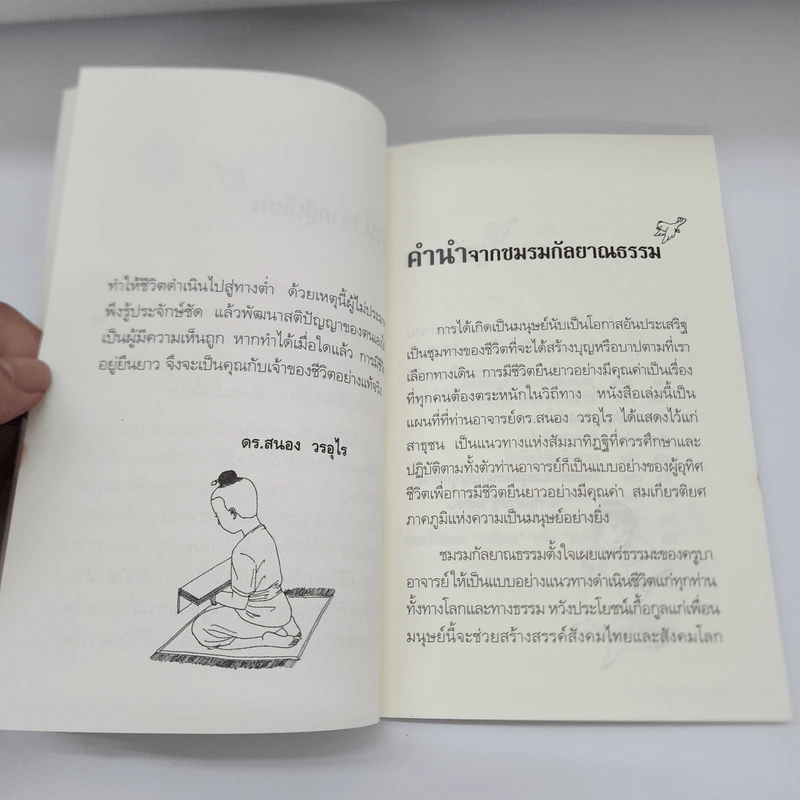 ทำให้ชีวิตดำเนินไปสู่ทางต่ำ ด้วยเหตุนี้ผู้ไม่ประมาท
พึงรู้ประจักษ์ชัด แล้วพัฒนาสติปัญญาของตนเอง
เป็นผู้มีความเห็นถูก หากทำได้เมื่อใดแล้ว การมีชีวิต
อยู่ยืนยาว จึงจะเป็นคุณกับเจ้าของชีวิตอย่างแท้จริง
ดร.สนอง วรอุไร
คำนำจากชมรมกัลยาณธรรม
การได้เกิดเป็นมนุษย์นับเป็นโอกาสอันประเสริฐ
เป็นชุมทางของชีวิตที่จะได้สร้างบุญหรือบาปตามที่เรา
เลือกทางเดิน การมีชีวิตยืนยาวอย่างมีคุณค่าเป็นเรื่อง
ที่ทุกคนต้องตระหนักในวิถีทาง หนังสือเล่มนี้เป็น
แผนที่ที่ท่านอาจารย์ดร.สนอง วรอุไร ได้แสดงไว้แก่
สาธุชน เป็นแนวทางแห่งสัมมาทิฏฐิที่ควรศึกษาและ
ปฏิบัติตามทั้งตัวท่านอาจารย์ก็เป็นแบบอย่างของผู้อุทิศ
ชีวิตเพื่อการมีชีวิตยืนยาวอย่างมีคุณค่า สมเกียรติยศ
ภาคภูมิแห่งความเป็นมนุษย์อย่างยิ่ง
ชมรมกัลยาณธรรมตั้งใจเผยแพร่ธรรมะของครูบา
อาจารย์ให้เป็นแบบอย่างแนวทางดำเนินชีวิตแก่ทุกท่าน
ทั้งทางโลกและทางธรรม หวังประโยชน์เกื้อกูลแก่เพื่อน
มนุษย์นี้จะช่วยสร้างสรรค์สังคมไทยและสังคมโลก